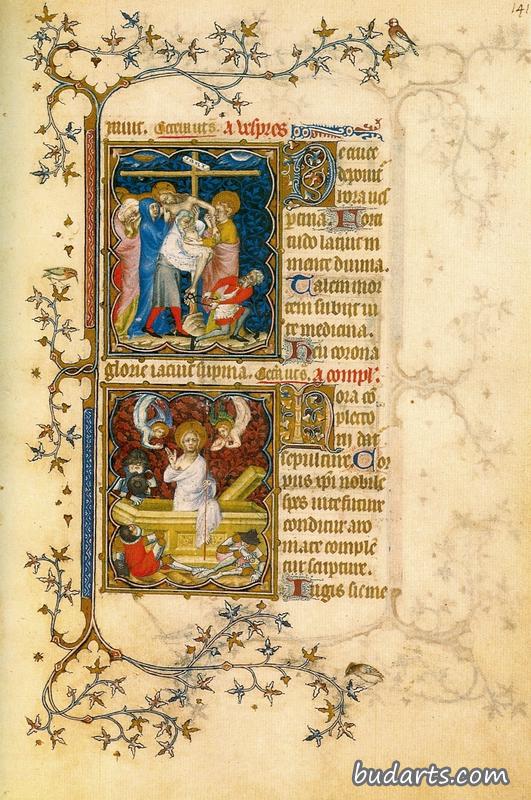 141
mur. Cetera ut s. A vespres
De cruce
deponit
hora ves
ptina. Forti
tudo latuit in
mente divina.
Talem mor
tem subiit vi
te medicina.
Heu corona
glorie iacuit supina. Cetera ut s. A compl'.
Hora co
pletto
rii dat
sepulture. Cor
pus xpi nobile
spes vite future
conditur aro
mate comple
tur scripture.
Iugis sit me
budarts.com